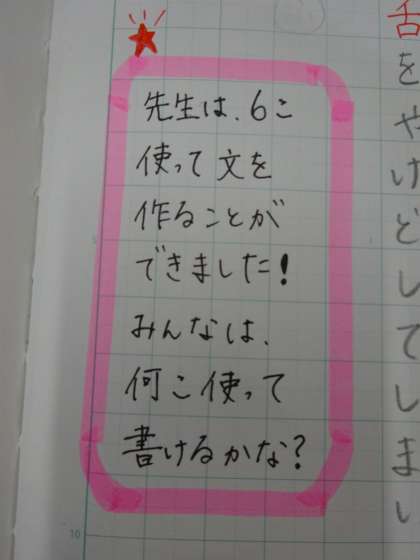 先生は、6こ
使って文を
作ることが
できました!
みんなは、
何こ使って
書けるかな?
舌をやけどしてしまい
10